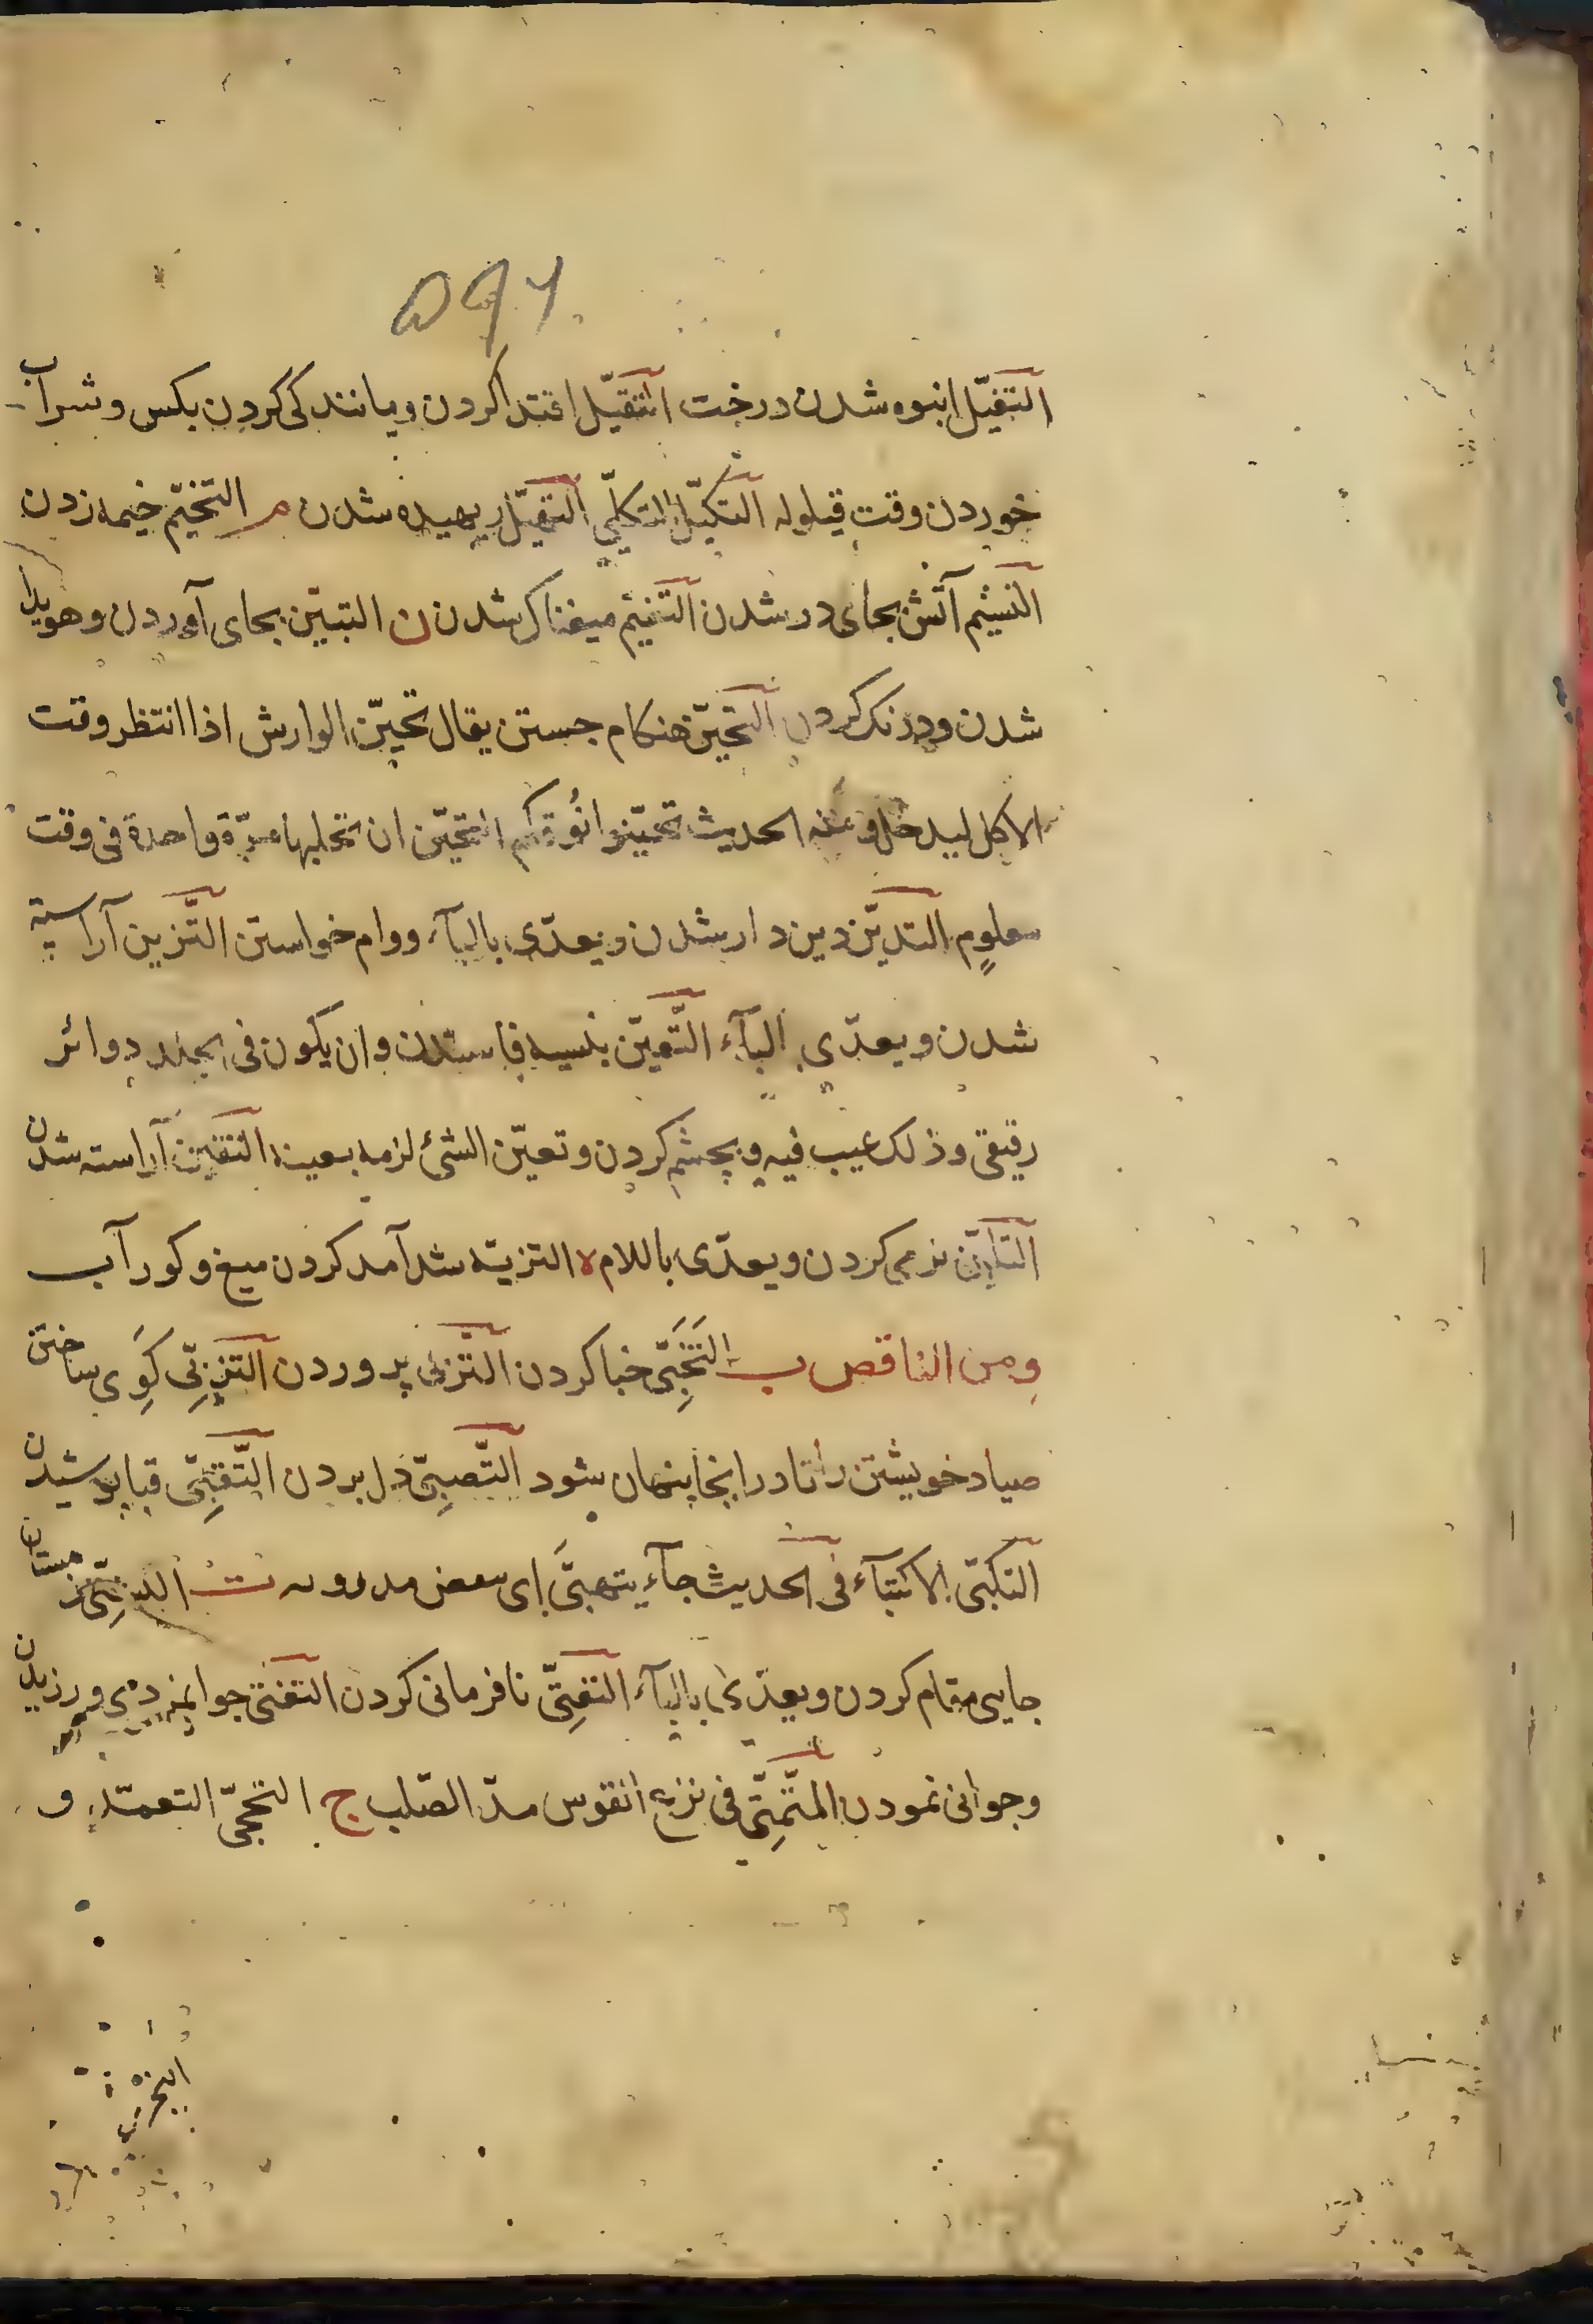 ۵۹۶
التغیّل انبوه شدن درخت التقیّل اقتدا کردن و مانندکی کردن بکس و شراب
خوردن وقت قیلوله التکیّل التکلّی التهیّل ریهیده شدن م التخیّم خیمه زدن
التشیّم آتش بجای در شدن التغیّم میغناک شدن ن التبیّن بجای آوردن و هویدا
شدن و درنک کردن التحیّن هنکام جستن یقال تحیّن الوارش اذا انتظر وقت
الاکل لیدخل و منه الحدیث تحیّنوا نُوقکم التحیّن ان تحلبها مرّة واحدة فی وقت
معلومٍ التدیّن دین دار شدن و یعدّی بالبآء و وام خواستن التّزین آراسته
شدن و یعدّی بالبآء التّعیّن بنسیه فا ستدن و ان یکون فی الجلد دوائر
رقیقی و ذلک عیب فیه و بچشم کردن و تعیّن الشئ لزمه بعینه التقیّن آراسته شدن
التلیّن نرمی کردن و یعدّی باللام ه التریّه شدآمد کردن میغ و کورآب
ومن الناقص ب التَخَبّی خبا کردن التّربّی پروردن التزبّی کَوی ساختن
صیاد خویشتن را تا در انجا پنهان شود التّصبّی دل بردن التّقبّی قبا پوشیدن
التکبّی الاکتبآء فی الحدیث جآء یتهبَّی ای ینفض ت
جایی مقام کردن و یعدّی بالبآء التعتّی نافرمانی کردن التفتّی جوانمردی ورزیدن
و جوانی نمودن التمتّی فی نزع القوس مدّ الصّلب ج التحجّی التعمّد و